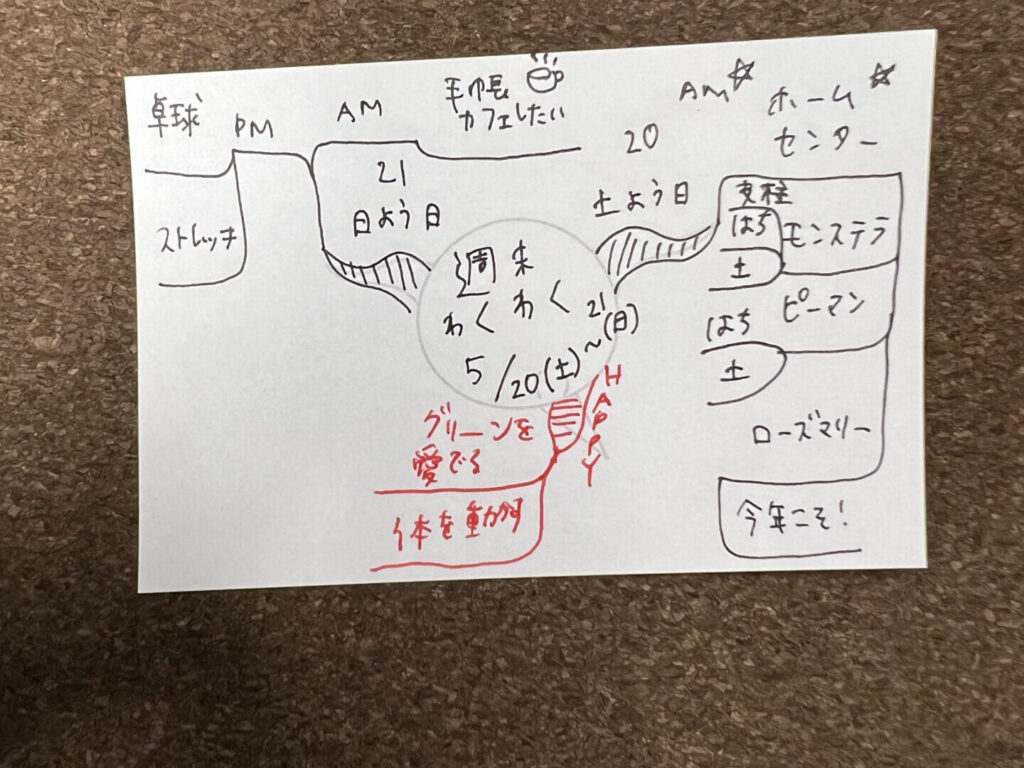 週末
わくわく
5/20(土)~21(日)
AM☆
ホーム☆
センター
20
土よう日
支柱
はち
土
モンステラ
はち
土
ピーマン
ローズマリー
今年こそ!
HAPPY
グリーンを
愛でる
体を動かす
21
日よう日
AM
手帳
カフェしたい
PM
卓球
ストレッチ